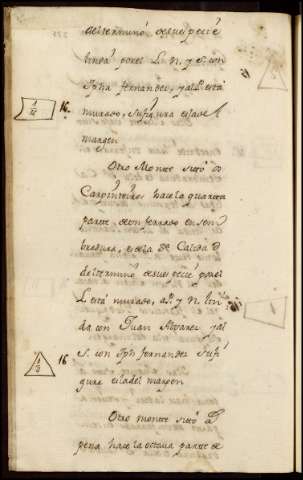 determinó desu especie
linda por el L. y N. y S. con
Jph fernandez, y al P. está
murado, su figura es la del
margen
Otro Monte sitio do
Carpinteiros hace la quarta
parte de un ferrado en sem
bradura, es de la de Calidad q
determinó desu especie por el
L. está murado, al P. y N. lin
da con Juan Alvarez y al
S. con Jph fernandez su fi
gura es la del margen
Otro monte sitio da
pena hace la octava parte de
1
12
16
1
3
16